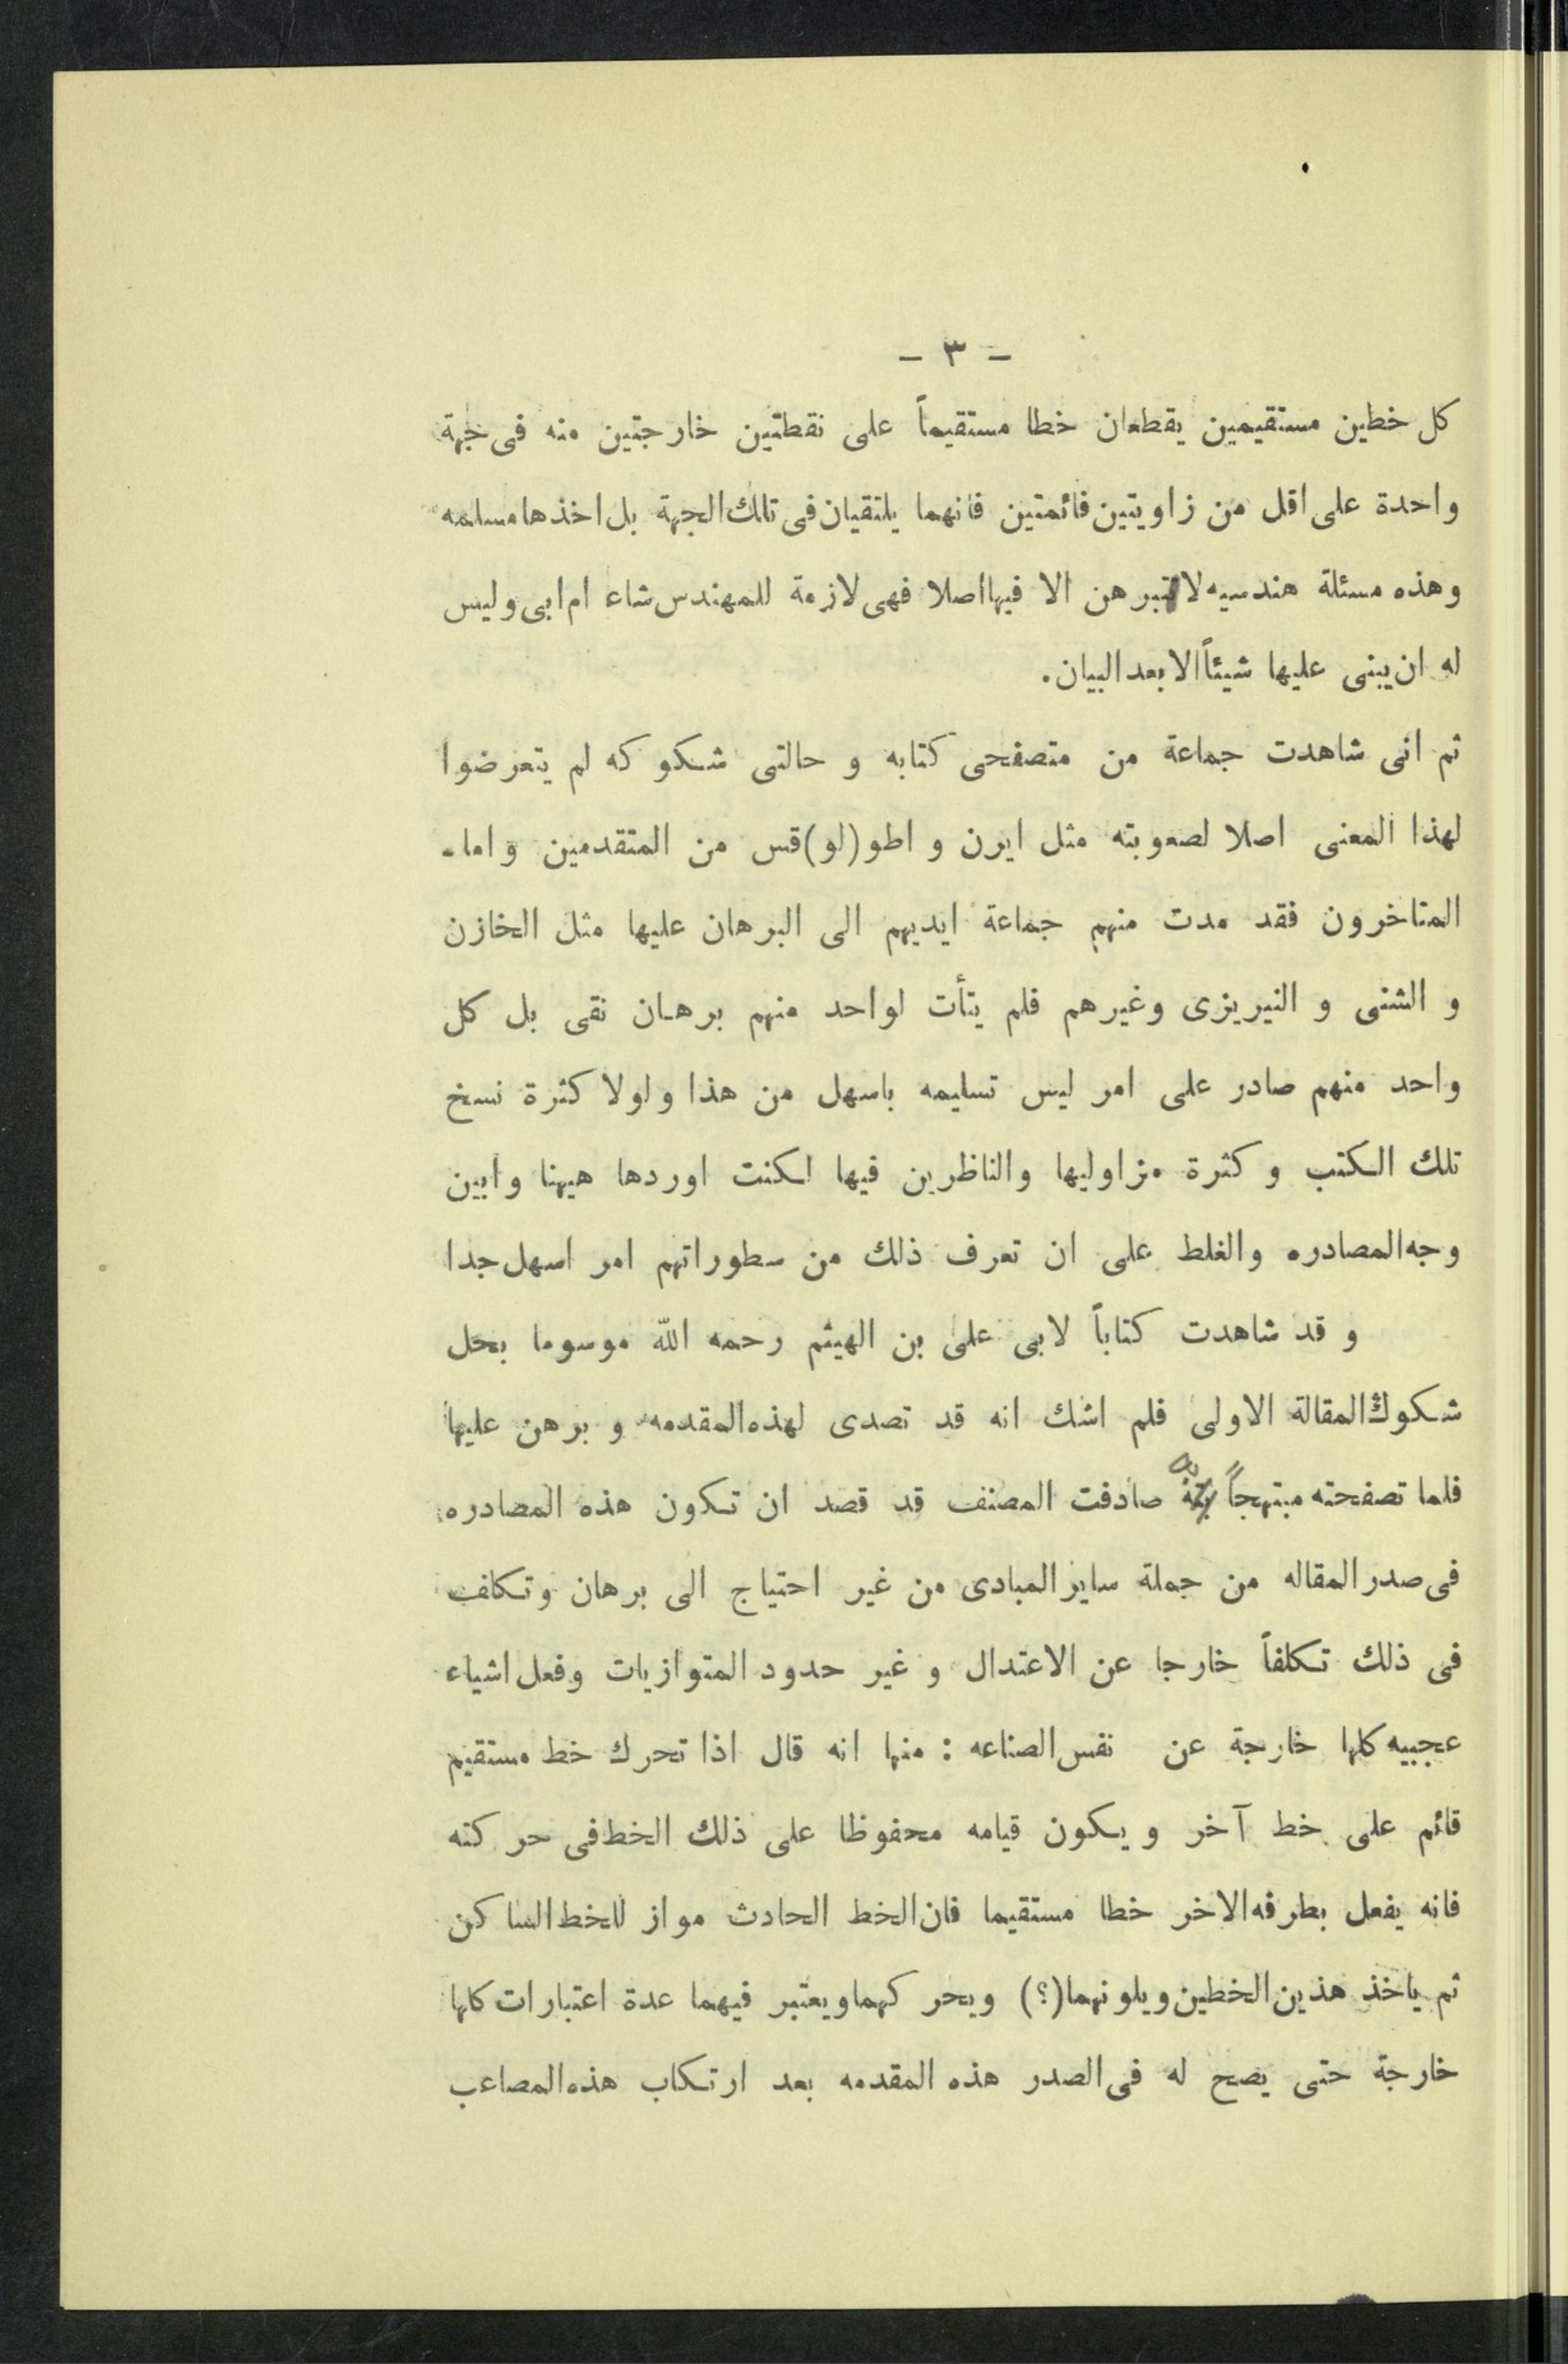 - ٣ -
كل خطين مستقيمين يقطعان خطا مستقيماً على نقطتين خارجتين منه فى جهة
واحدة على اقل من زاويتين قائمتين فانهما يلتقيان فى تلك الجهة بل اخذها مسلمه
وهذه مسئلة هندسيه لا تبرهن الا فيها اصلا فهى لازمة للمهندس شاء ام ابى وليس
له ان يبنى عليها شيئاً الا بعد البيان.
ثم انى شاهدت جماعة من متصفحى كتابه و حالتى شكوكه لم يتعرضوا
لهذا المعنى اصلا لصعوبته مثل ايرن و اطو(لو)قس من المتقدمين و اما-
المتاخرون فقد مدت منهم جماعة ايديهم الى البرهان عليها مثل الخازن
و الشنى و النيريزى وغيرهم فلم يتأت لواحد منهم برهان نقى بل كل
واحد منهم صادر على امر ليس تسليمه باسهل من هذا ولولا كثرة نسخ
تلك الكتب و كثرة مزاوليها والناظرين فيها لكنت اوردها هيهنا وابين
وجه المصادره والغلط على ان تعرف ذلك من سطوراتهم امر اسهل جدا
و قد شاهدت كتاباً لابى على بن الهيثم رحمه الله موسوما بحل
شكوك المقالة الاولى فلم اشك انه قد تصدى لهذه المقدمه و برهن عليها
فلما تصفحته مبتهجاً به صادفت المصنف قد قصد ان تكون هذه المصادره
فى صدر المقاله من جملة ساير المبادى من غير احتياج الى برهان وتكلف
فى ذلك تكلفاً خارجا عن الاعتدال و غير حدود المتوازيات وفعل اشياء
عجبيه كلها خارجة عن نفس الصناعه : منها انه قال اذا تحرك خط مستقيم
قائم على خط آخر ويكون قيامه محفوظا على ذلك الخط فى حركته
فانه يفعل بطرفه الاخر خطا مستقيما فان الخط الحادث مواز للخط الساكن
ثم ياخذ هذين الخطين ويلونهما(؟) ويحركهما ويعتبر فيهما عدة اعتبارات كلها
خارجة حتى يصح له فى الصدر هذه المقدمه بعد ارتكاب هذه المصاعب